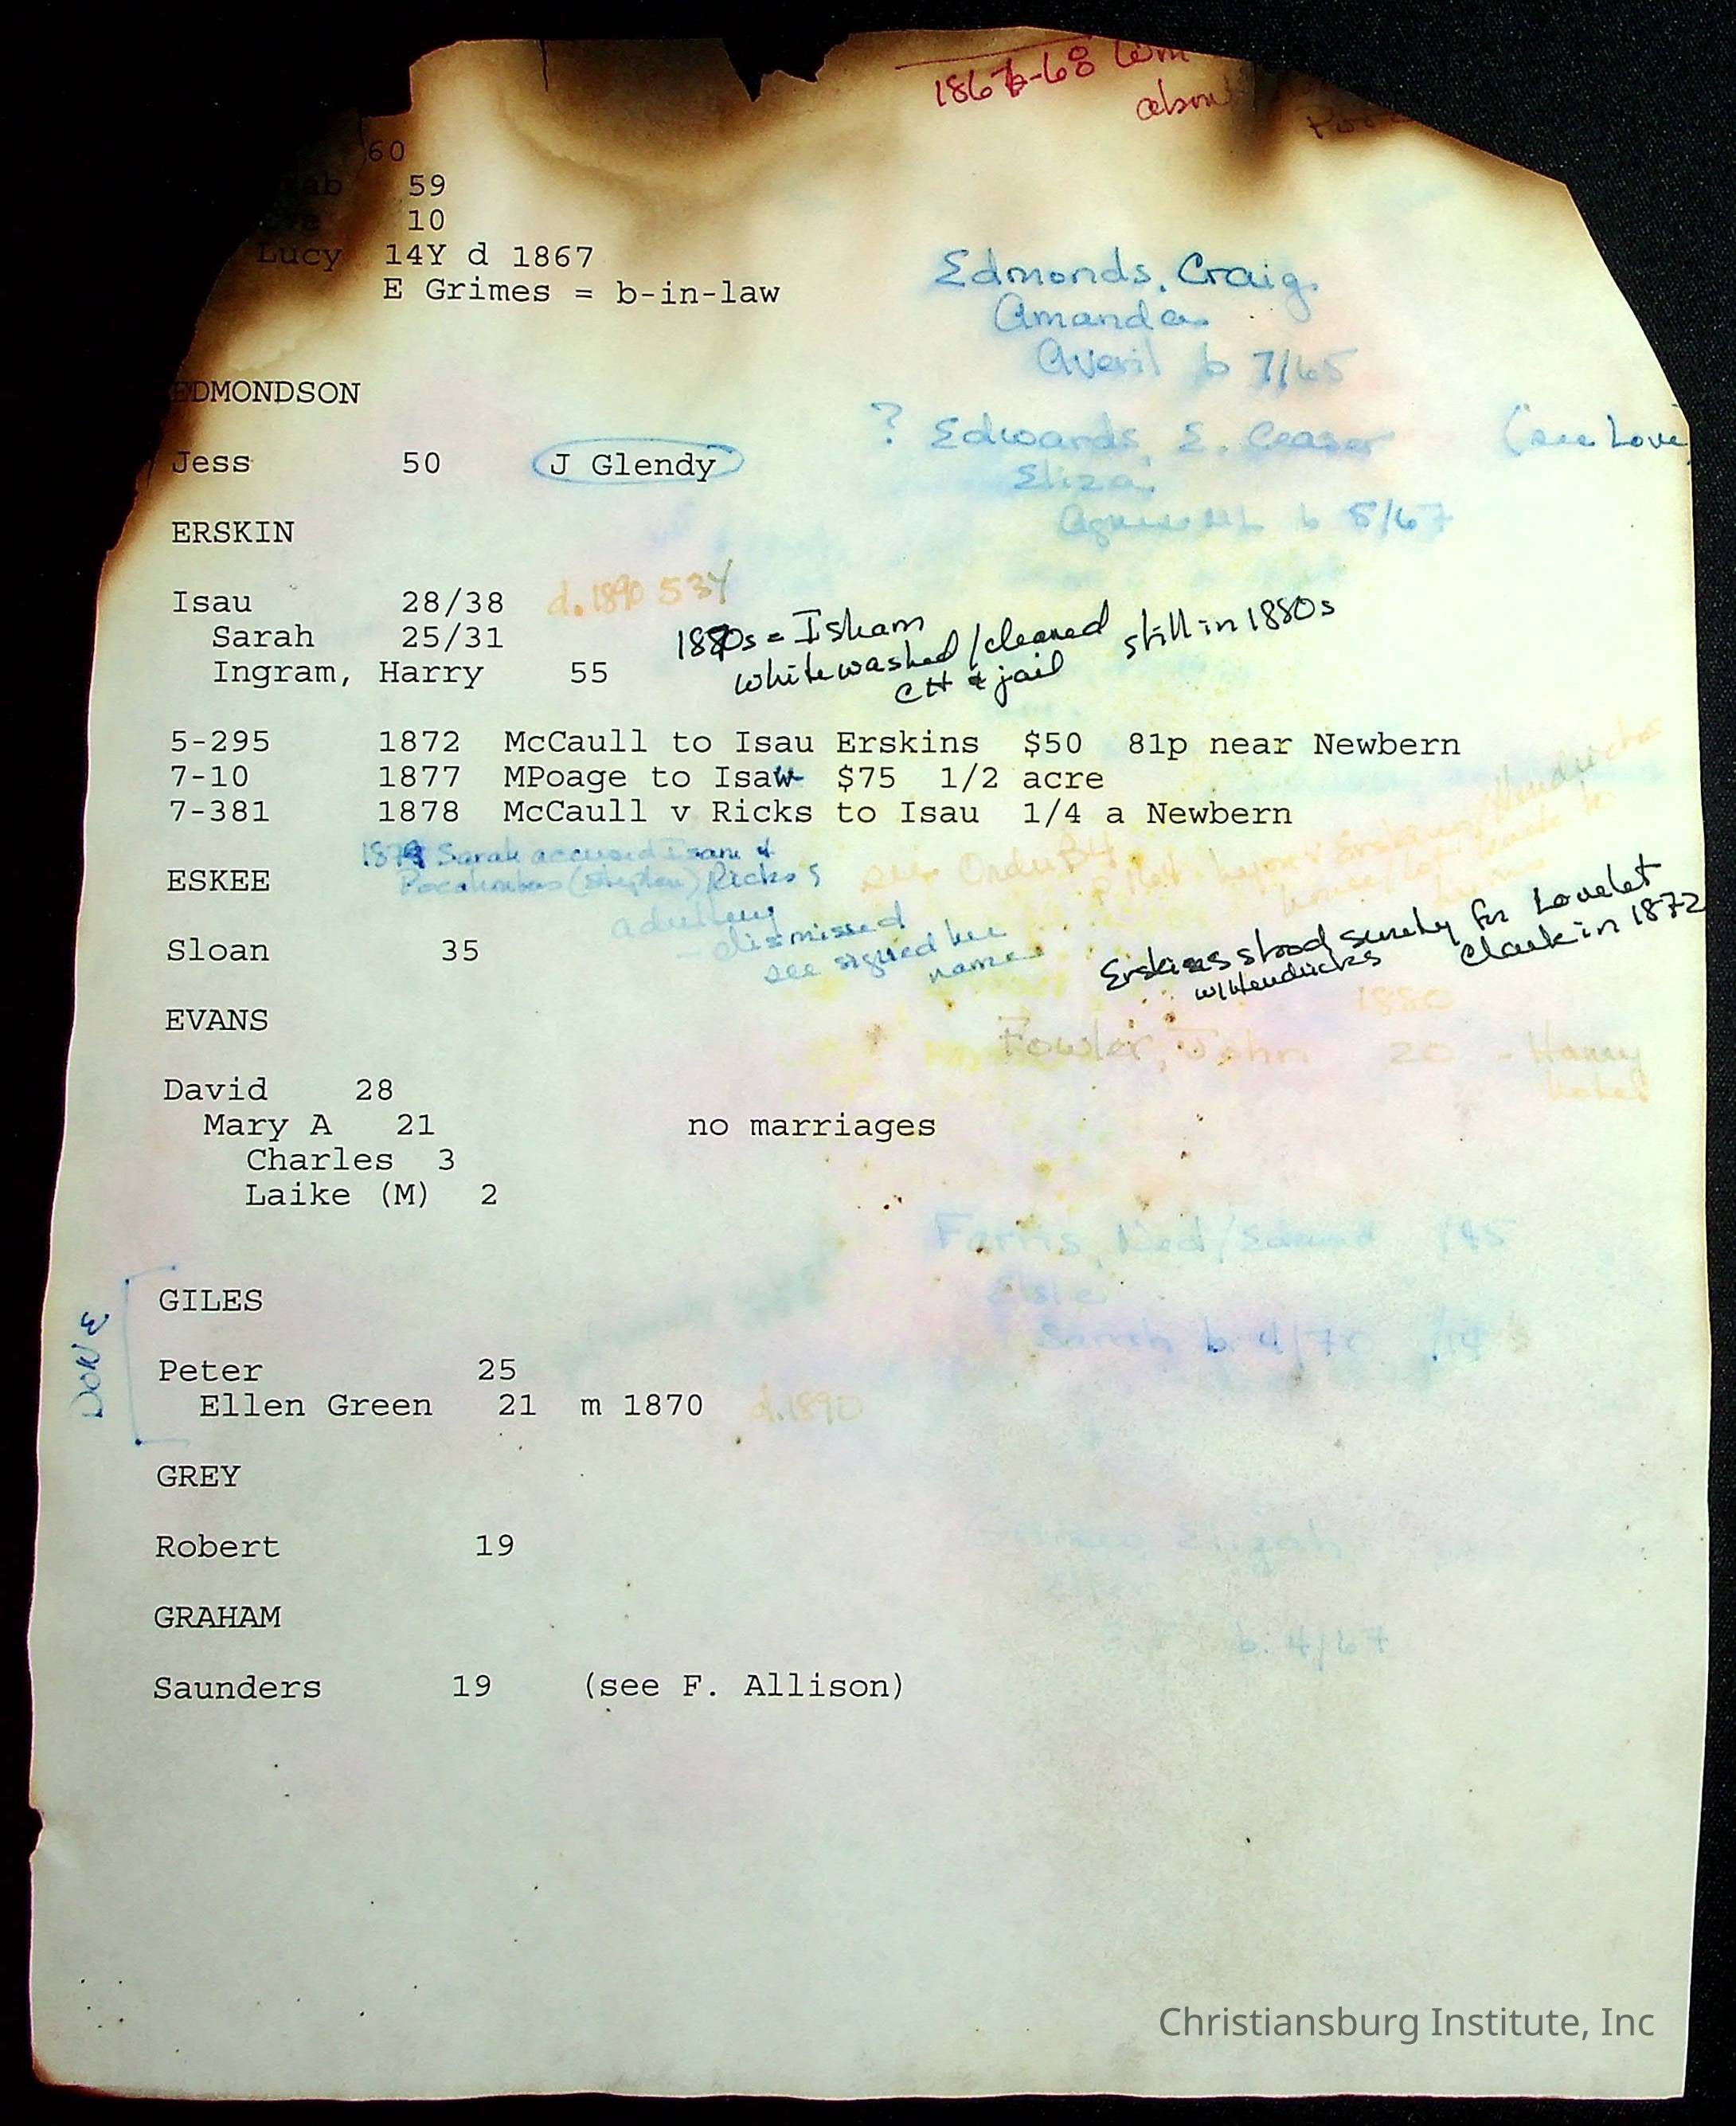 1867-68
60
59
10
Lucy 14Y d 1867
E Grimes = b-in-law
Edmonds, Craig
Amanda
Averil b 7/65
EDMONDSON
? Edwards, E. Ceaser (see Love
Eliza
Jess 50 J Glendy
b 5/67
ERSKIN
Isau 28/38 d. 1890 53Y
Sarah 25/31
Ingram, Harry 55
1880s = Isham
whitewashed/cleaned still in 1880s
CH & jail
5-295 1872 McCaull to Isau Erskins $50 81p near Newbern
7-10 1877 MPoage to Isaw $75 1/2 acre
7-381 1878 McCaull v Ricks to Isau 1/4 a Newbern
Sarah accused Isam &
Pocahontas (Stephen) Ricks
adultery
- dismissed
see signed her
name
see Order B4
ESKEE
Erskines stood surety for Lovelet
w/Hendricks Clark in 1872
Sloan 35
EVANS
1880
Fowler, John 20 - Harry
David 28
Mary A 21 no marriages
Charles 3
Laike (M) 2
Farris, Ned/Edmund 45
Sarah b. 4/7
DONE
GILES
Peter 25
Ellen Green 21 m 1870 d. 1890
GREY
Robert 19
GRAHAM
b. 4/67
Saunders 19 (see F. Allison)
Christiansburg Institute, Inc